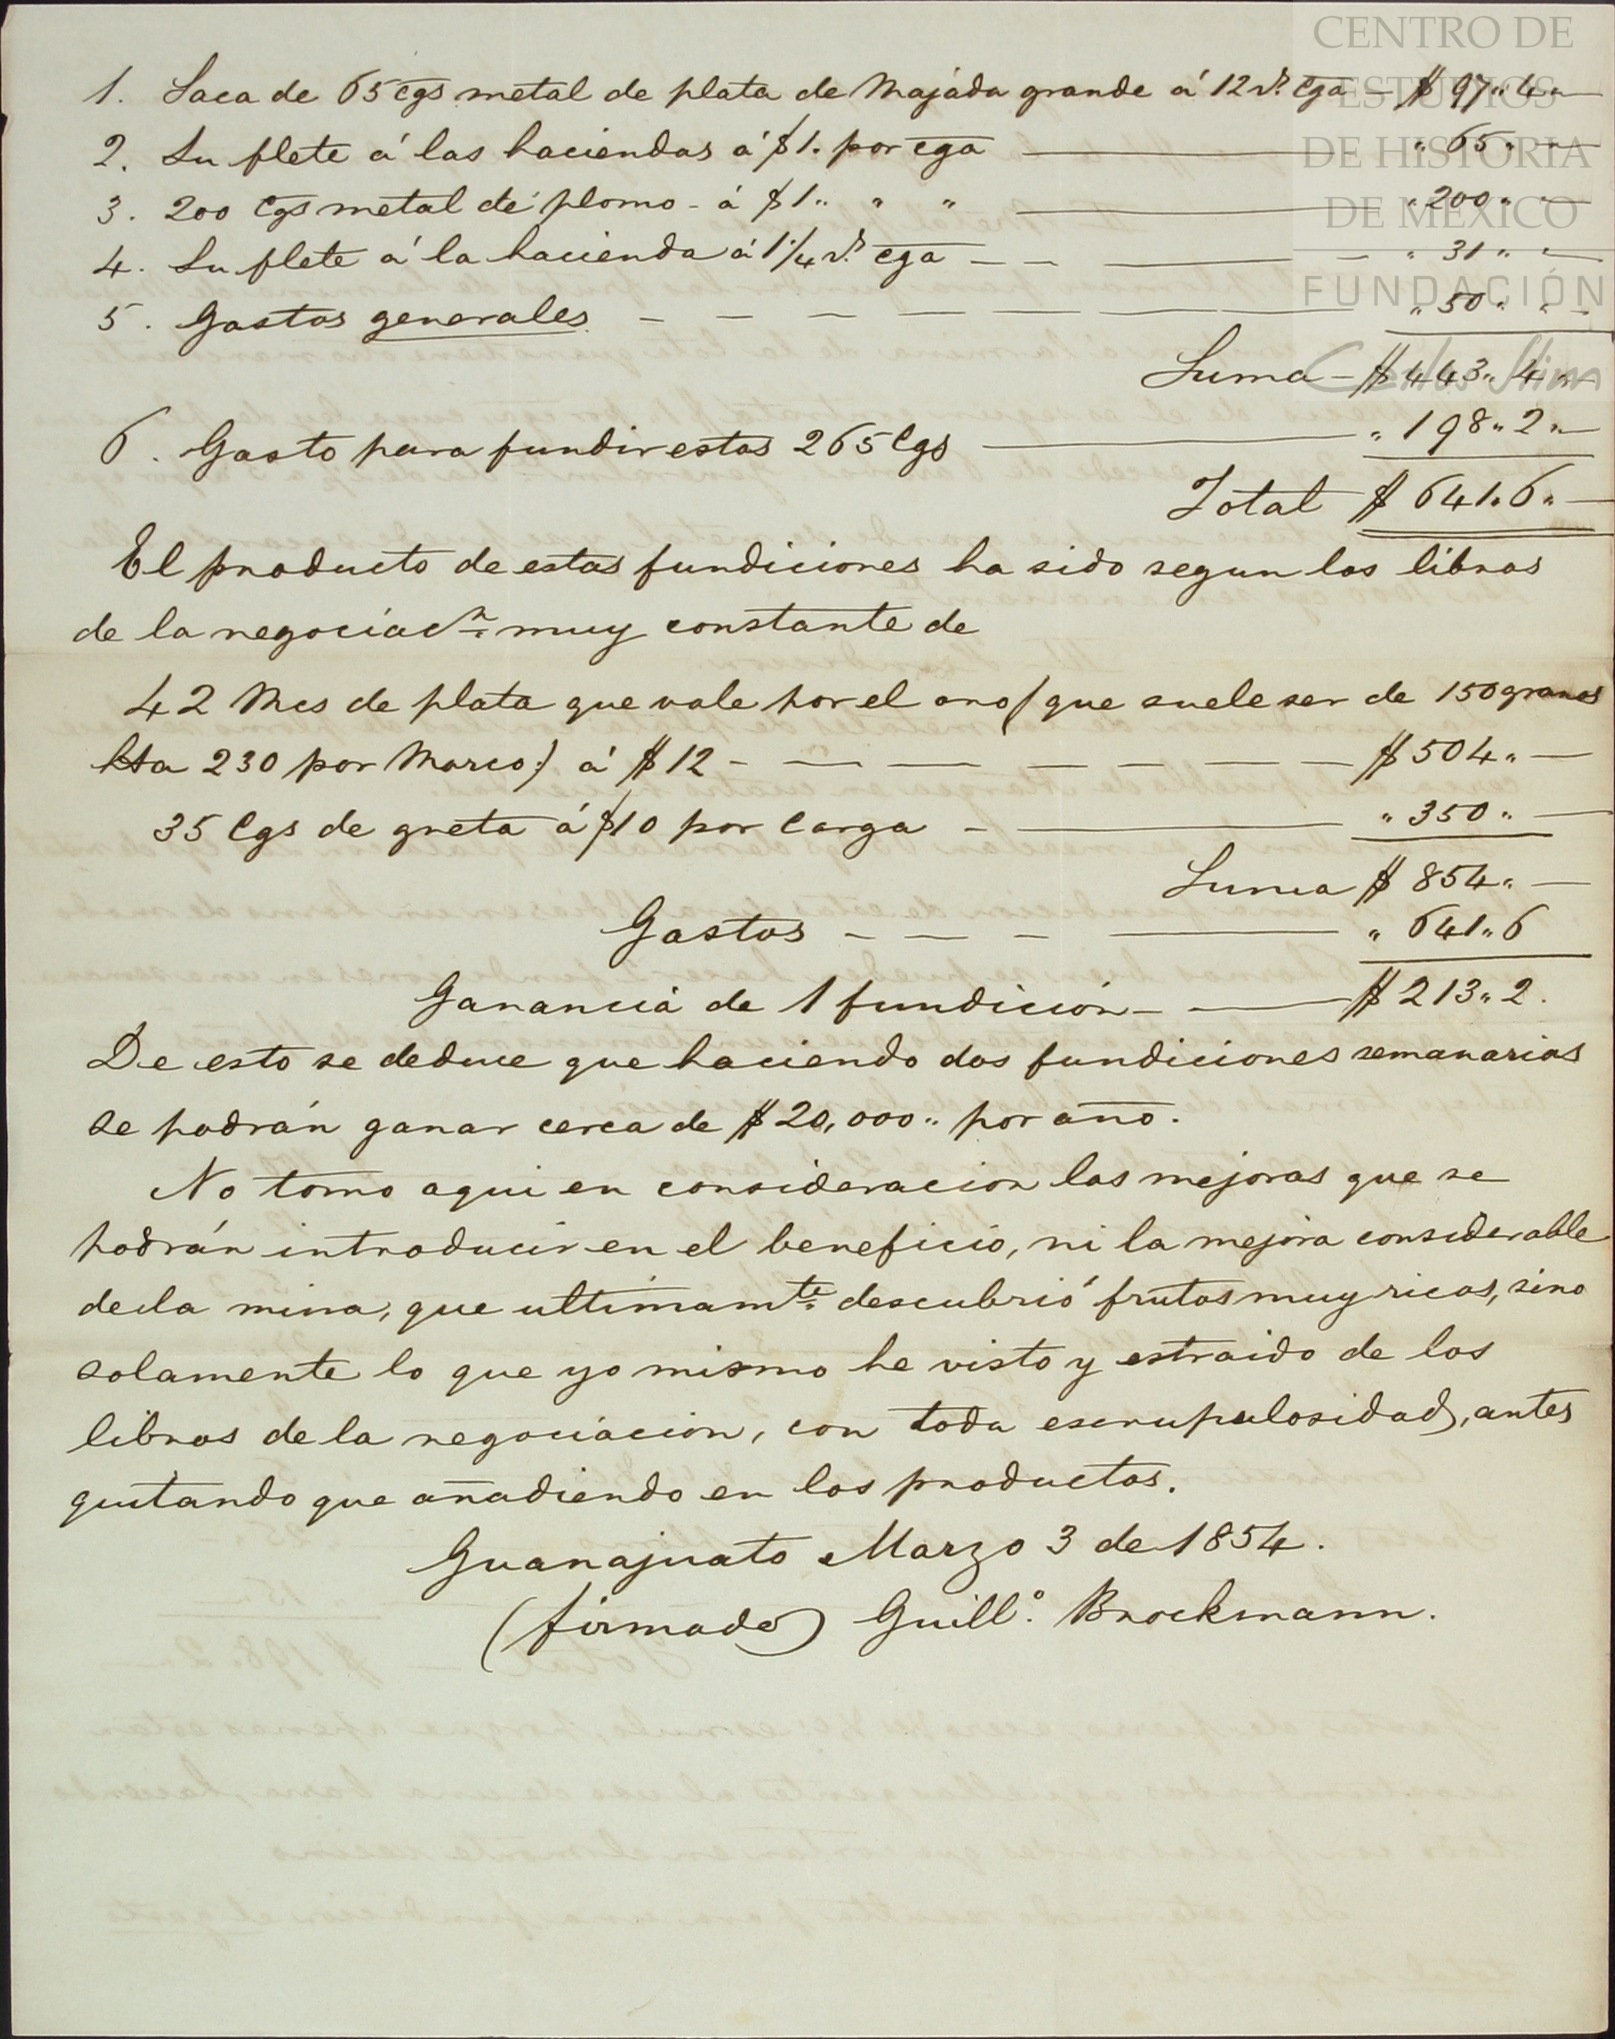 CENTRO DE
ESTUDIOS
DE HISTORIA
DE MÉXICO
FUNDACIÓN
Carlos Slim
1. Saca de 65 cgs metal de plata de Majada grande á 12 rs. cga - $ 97 " 4 " —
2. Su flete á las haciendas á $1. por cga — " 65 " —
3. 200 Cgs metal de plomo - á $1 " " " — " 200 " —
4. Su flete á la hacienda á 1 1/4 rs. cga — " 31 " —
5. Gastos generales — " 50 " " -
Suma - $ 443 " 4 " —
6. Gasto para fundir estas 265 Cgs — " 198 " 2 " —
Total $ 641 " 6 " —
El producto de estas fundiciones ha sido segun los libros
de la negociacn. muy constante de
42 Mcs de plata que vale por el oro (que suele ser de 150 granos
hta 230 por Marco) á $12 - — — $ 504 " —
35 Cgs de greta á $10 por Carga - — " 350 " —
Suma $ 854 " —
Gastos - — — " 641 " 6
Ganancia de 1 fundición - — $ 213 " 2.
De esto se deduce que haciendo dos fundiciones semanarias
se podrán ganar cerca de $ 20,000 " por año.
No tomo aqui en consideracion las mejoras que se
podrán introducir en el beneficio, ni la mejora considerable
de la mina, que ultimamte. descubrió frutos muy ricos, sino
solamente lo que yo mismo he visto y estraido de los
libros de la negociación, con toda escrupulosidad, antes
quitando que añadiendo en los productos.
Guanajuato Marzo 3 de 1854.
(firmado) Guillo. Brockmann.